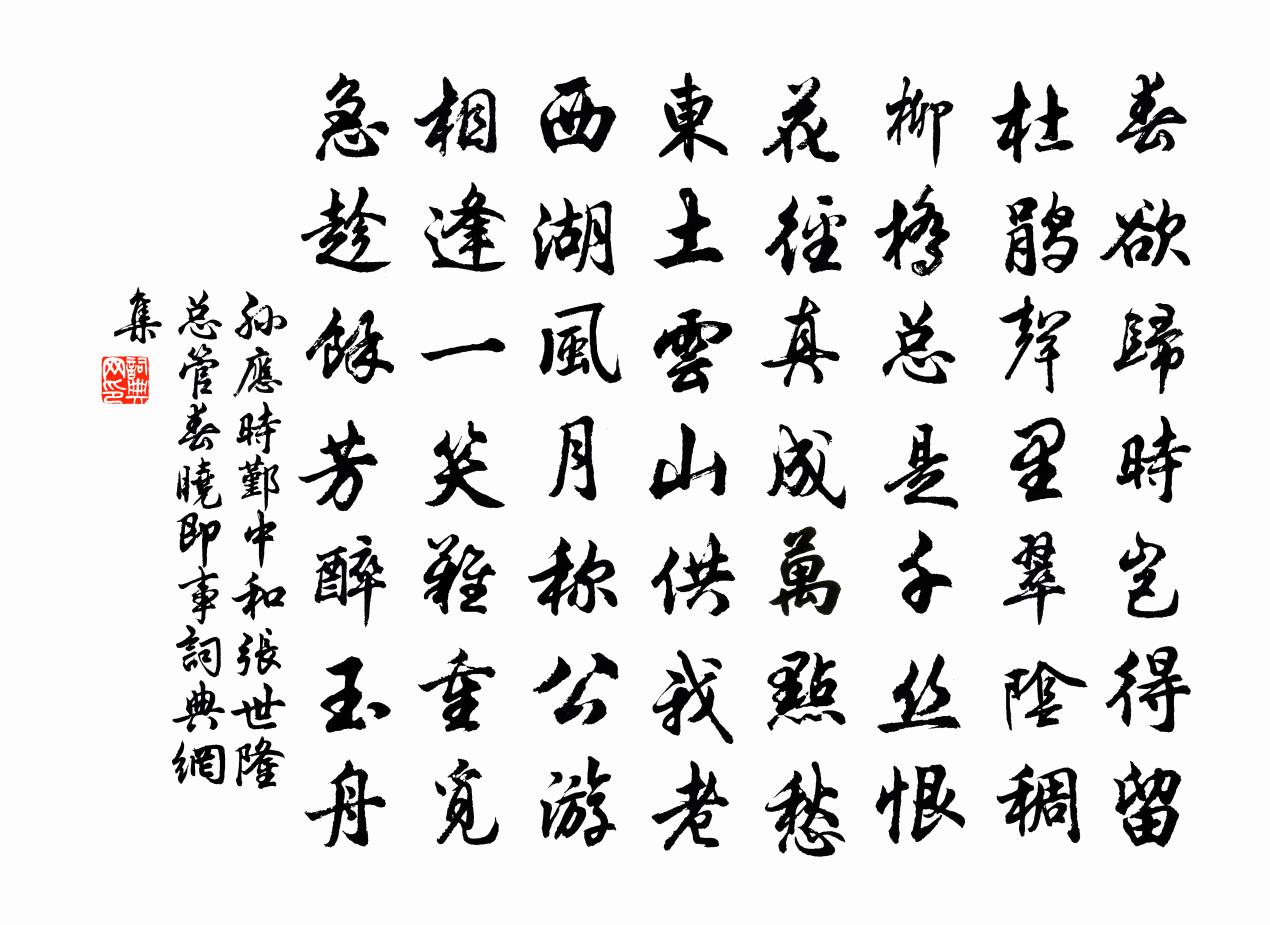 春欲歸時豈得留
杜鵑聲里翠陰稠
柳橋总是千丝恨
花徑真成萬點愁
東土雲山供我老
西湖風月称公游
相逢一笑難重覓
急趁餘芳醉玉舟
孙應時鄞中和張世隆
总管春曉即事詞典網
集
詞典
网印